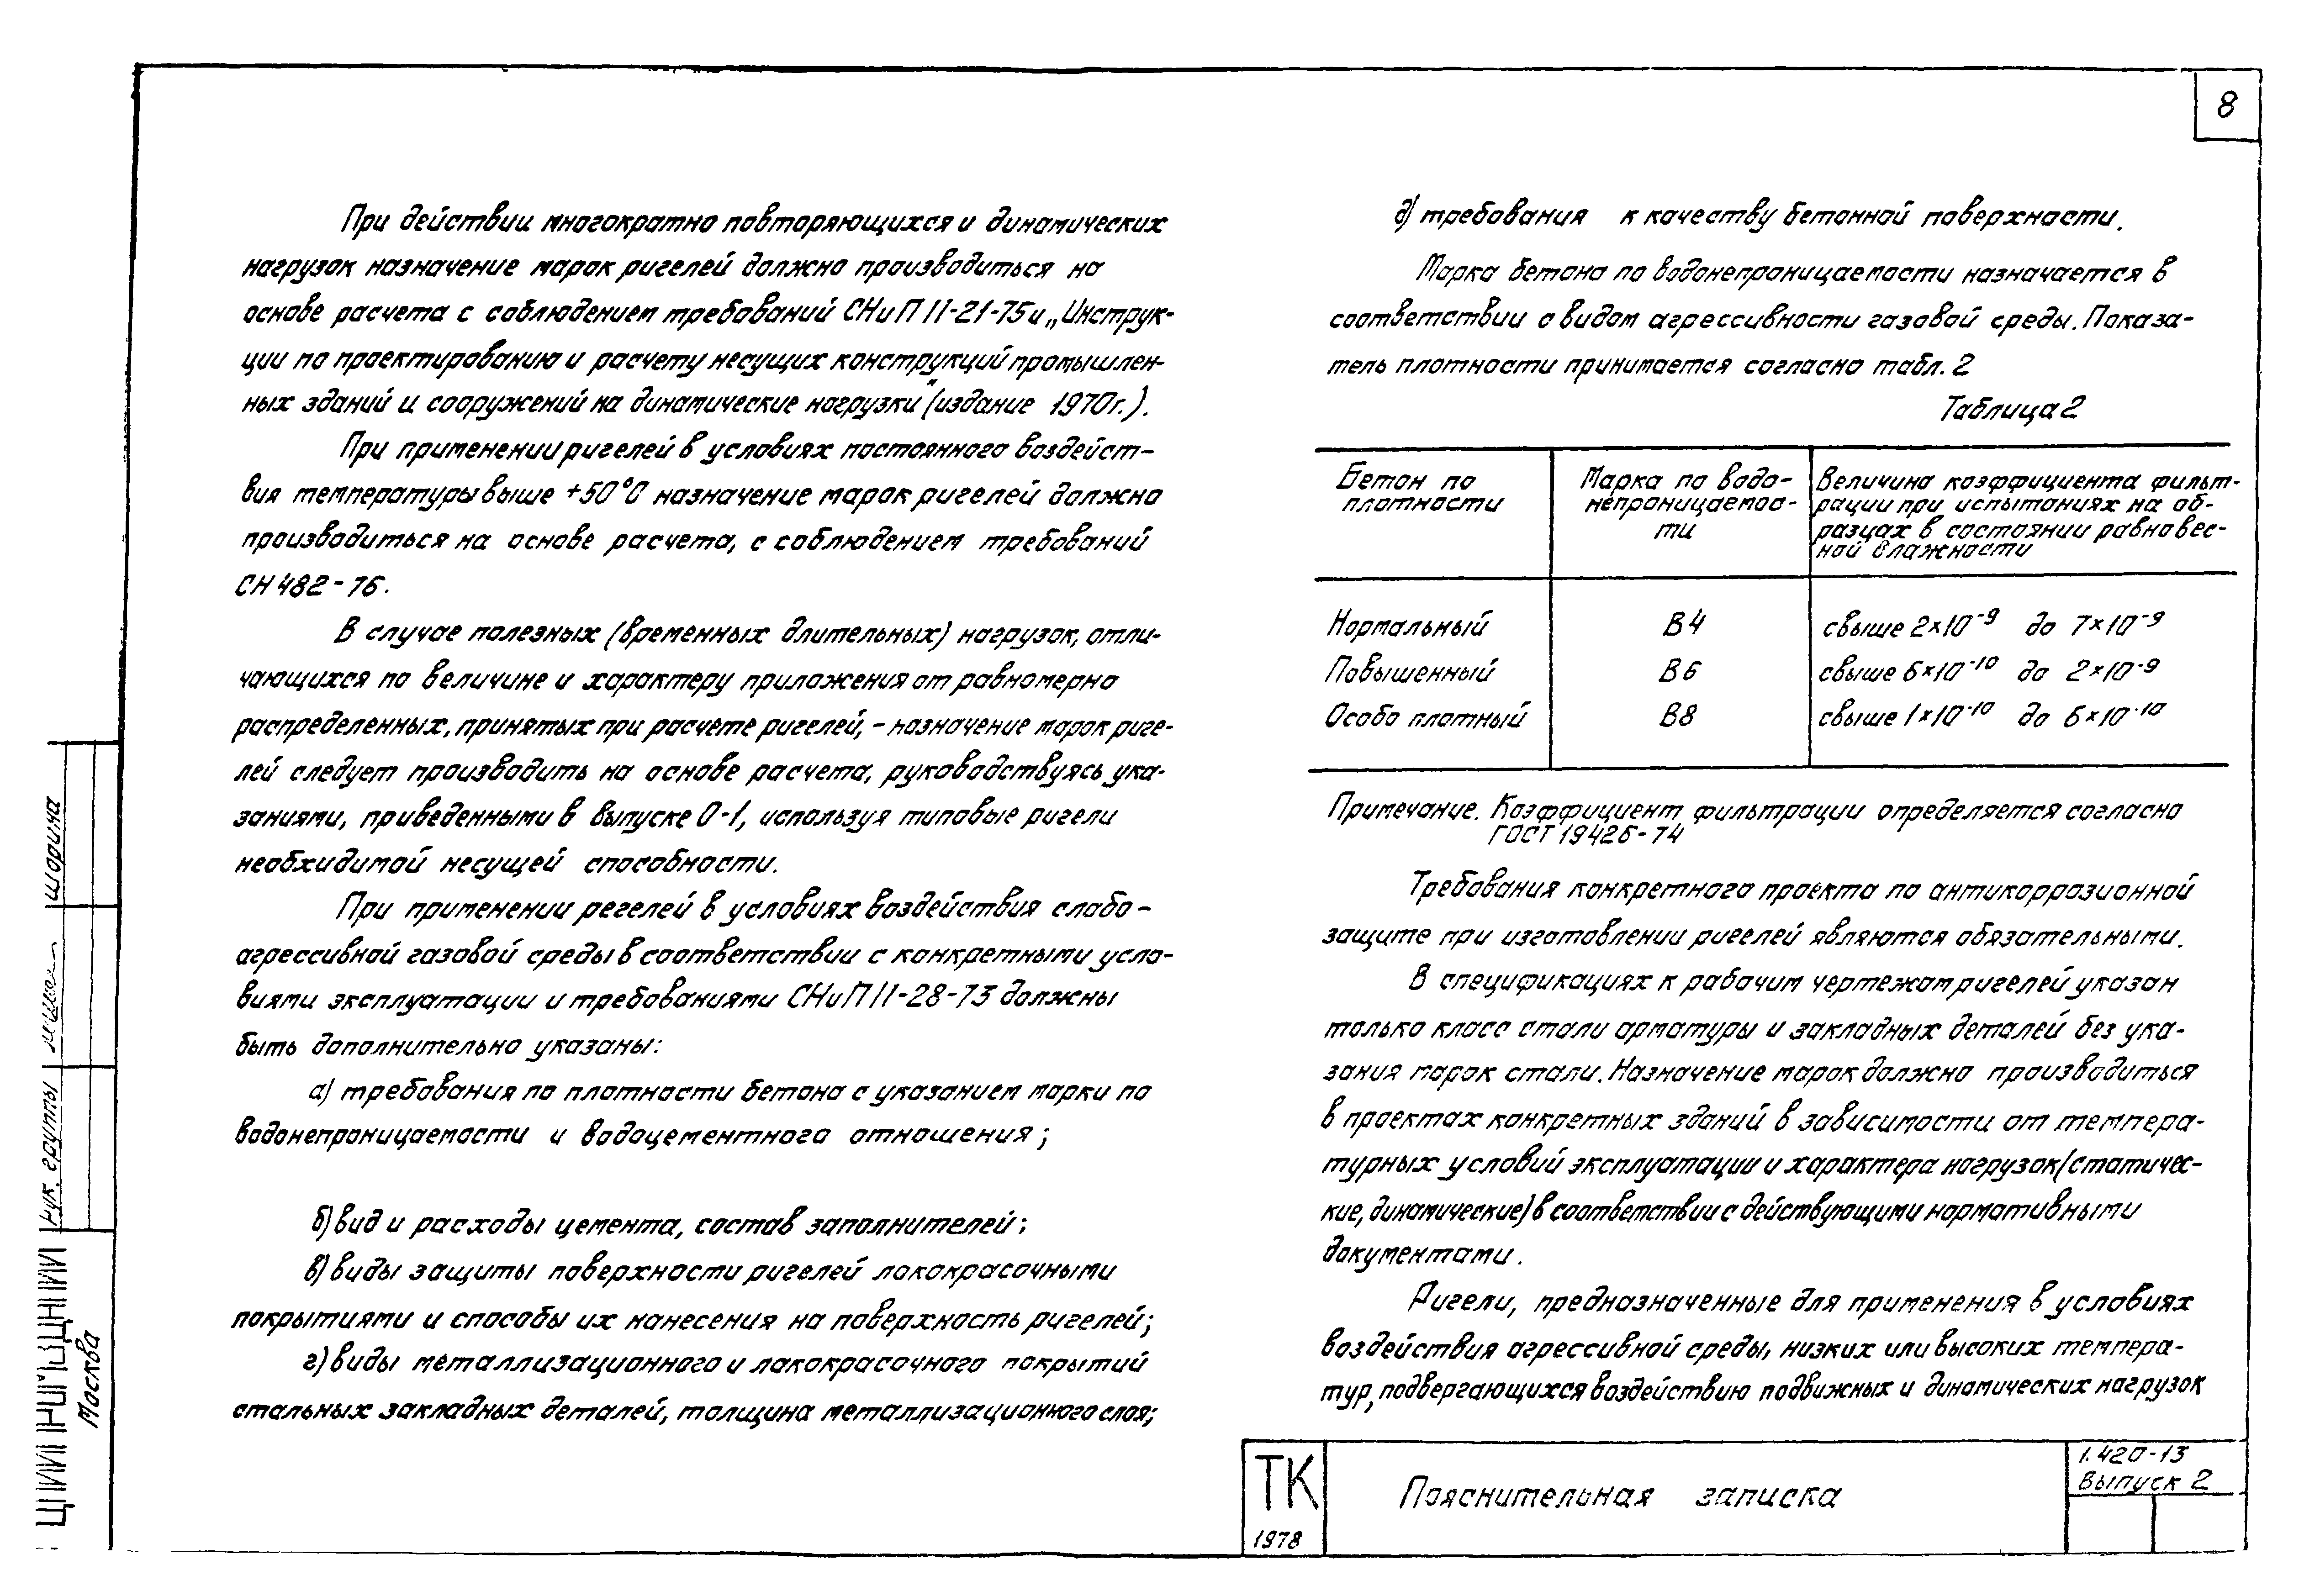 8
При действии многократно повторяющихся и динамических
нагрузок назначение марок ригелей должно производиться на
основе расчета с соблюдением требований СНиП II-21-75 и „Инструк-
ции по проектированию и расчету несущих конструкций промышлен-
ных зданий и сооружений на динамические нагрузки" (издание 1970г.).
При применении ригелей в условиях постоянного воздейст-
вия температуры выше +50°С назначение марок ригелей должно
производиться на основе расчета, с соблюдением требований
СН 482-76.
В случае полезных (временных длительных) нагрузок, отли-
чающихся по величине и характеру приложения от равномерно
распределенных, принятых при расчете ригелей, - назначение марок риге-
лей следует производить на основе расчета, руководствуясь ука-
заниями, приведенными в выпуске 0-1, используя типовые ригели
необхидимой несущей способности.
При применении регелей в условиях воздействия слабо-
агрессивной газовой среды в соответствии с конкретными усло-
виями эксплуатации и требованиями СНиП II-28-73 должны
быть дополнительно указаны:
а) требования по плотности бетона с указанием марки по
водонепроницаемости и водоцементного отношения;
б) вид и расходы цемента, состав заполнителей;
в) виды защиты поверхности ригелей лакокрасочными
покрытиями и способы их нанесения на поверхность ригелей;
г) виды металлизационного и лакокрасочного покрытий
стальных закладных деталей, толщина металлизационного слоя;
д) требования к качеству бетонной поверхности.
Марка бетона по водонепроницаемости назначается в
соответствии с видом агрессивности газовой среды. Показа-
тель плотности принимается согласно табл. 2
Таблица 2
Бетон по
плотности
Марка по водо-
непроницаемос-
ти
Величина коэффициента фильт-
рации при испытаниях на об-
разцах в состоянии равновес-
ной влажности
Нормальный В4 свыше 2×10⁻⁹ до 7×10⁻⁹
Повышенный В6 свыше 6×10⁻¹⁰ до 2×10⁻⁹
Особо плотный В8 свыше 1×10⁻¹⁰ до 6×10⁻¹⁰
Примечание. Коэффициент фильтрации определяется согласно
ГОСТ 19426-74
Требования конкретного проекта по антикоррозионной
защите при изготовлении ригелей являются обязательными.
В спецификациях к рабочим чертежам ригелей указан
только класс стали арматуры и закладных деталей без ука-
зания марок стали. Назначение марок должно производиться
в проектах конкретных зданий в зависимости от темпера-
турных условий эксплуатации и характера нагрузок (статичес-
кие, динамические) в соответствии с действующими нормативными
документами.
Ригели, предназначенные для применения в условиях
воздействия агрессивной среды, низких или высоких темпера-
тур, подвергающихся воздействию подвижных и динамических нагрузок
ТК
1978
Пояснительная записка
1.420-13
Выпуск 2
Рук. группы Шорина
Москва